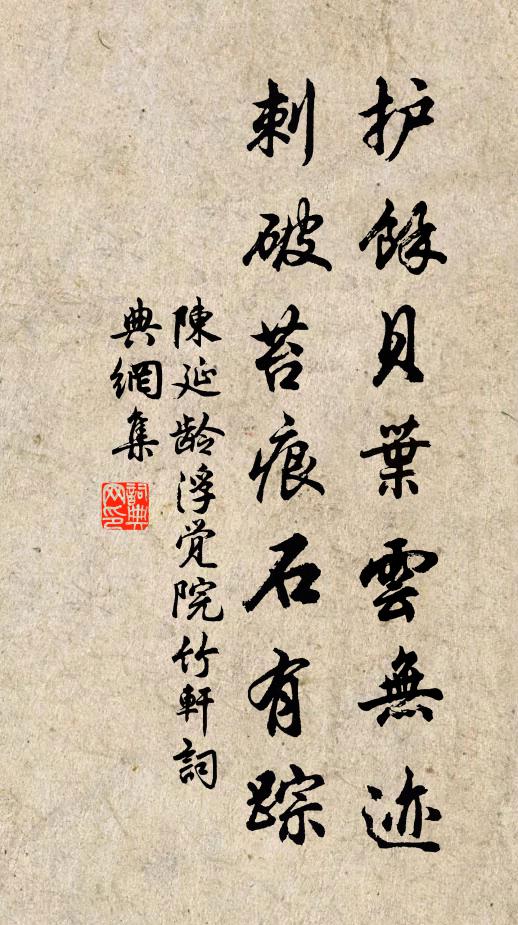 护餘貝葉雲無迹
刺破苔痕石有踪
陳延龄浮觉院竹軒詞
典網集
詞典
网印